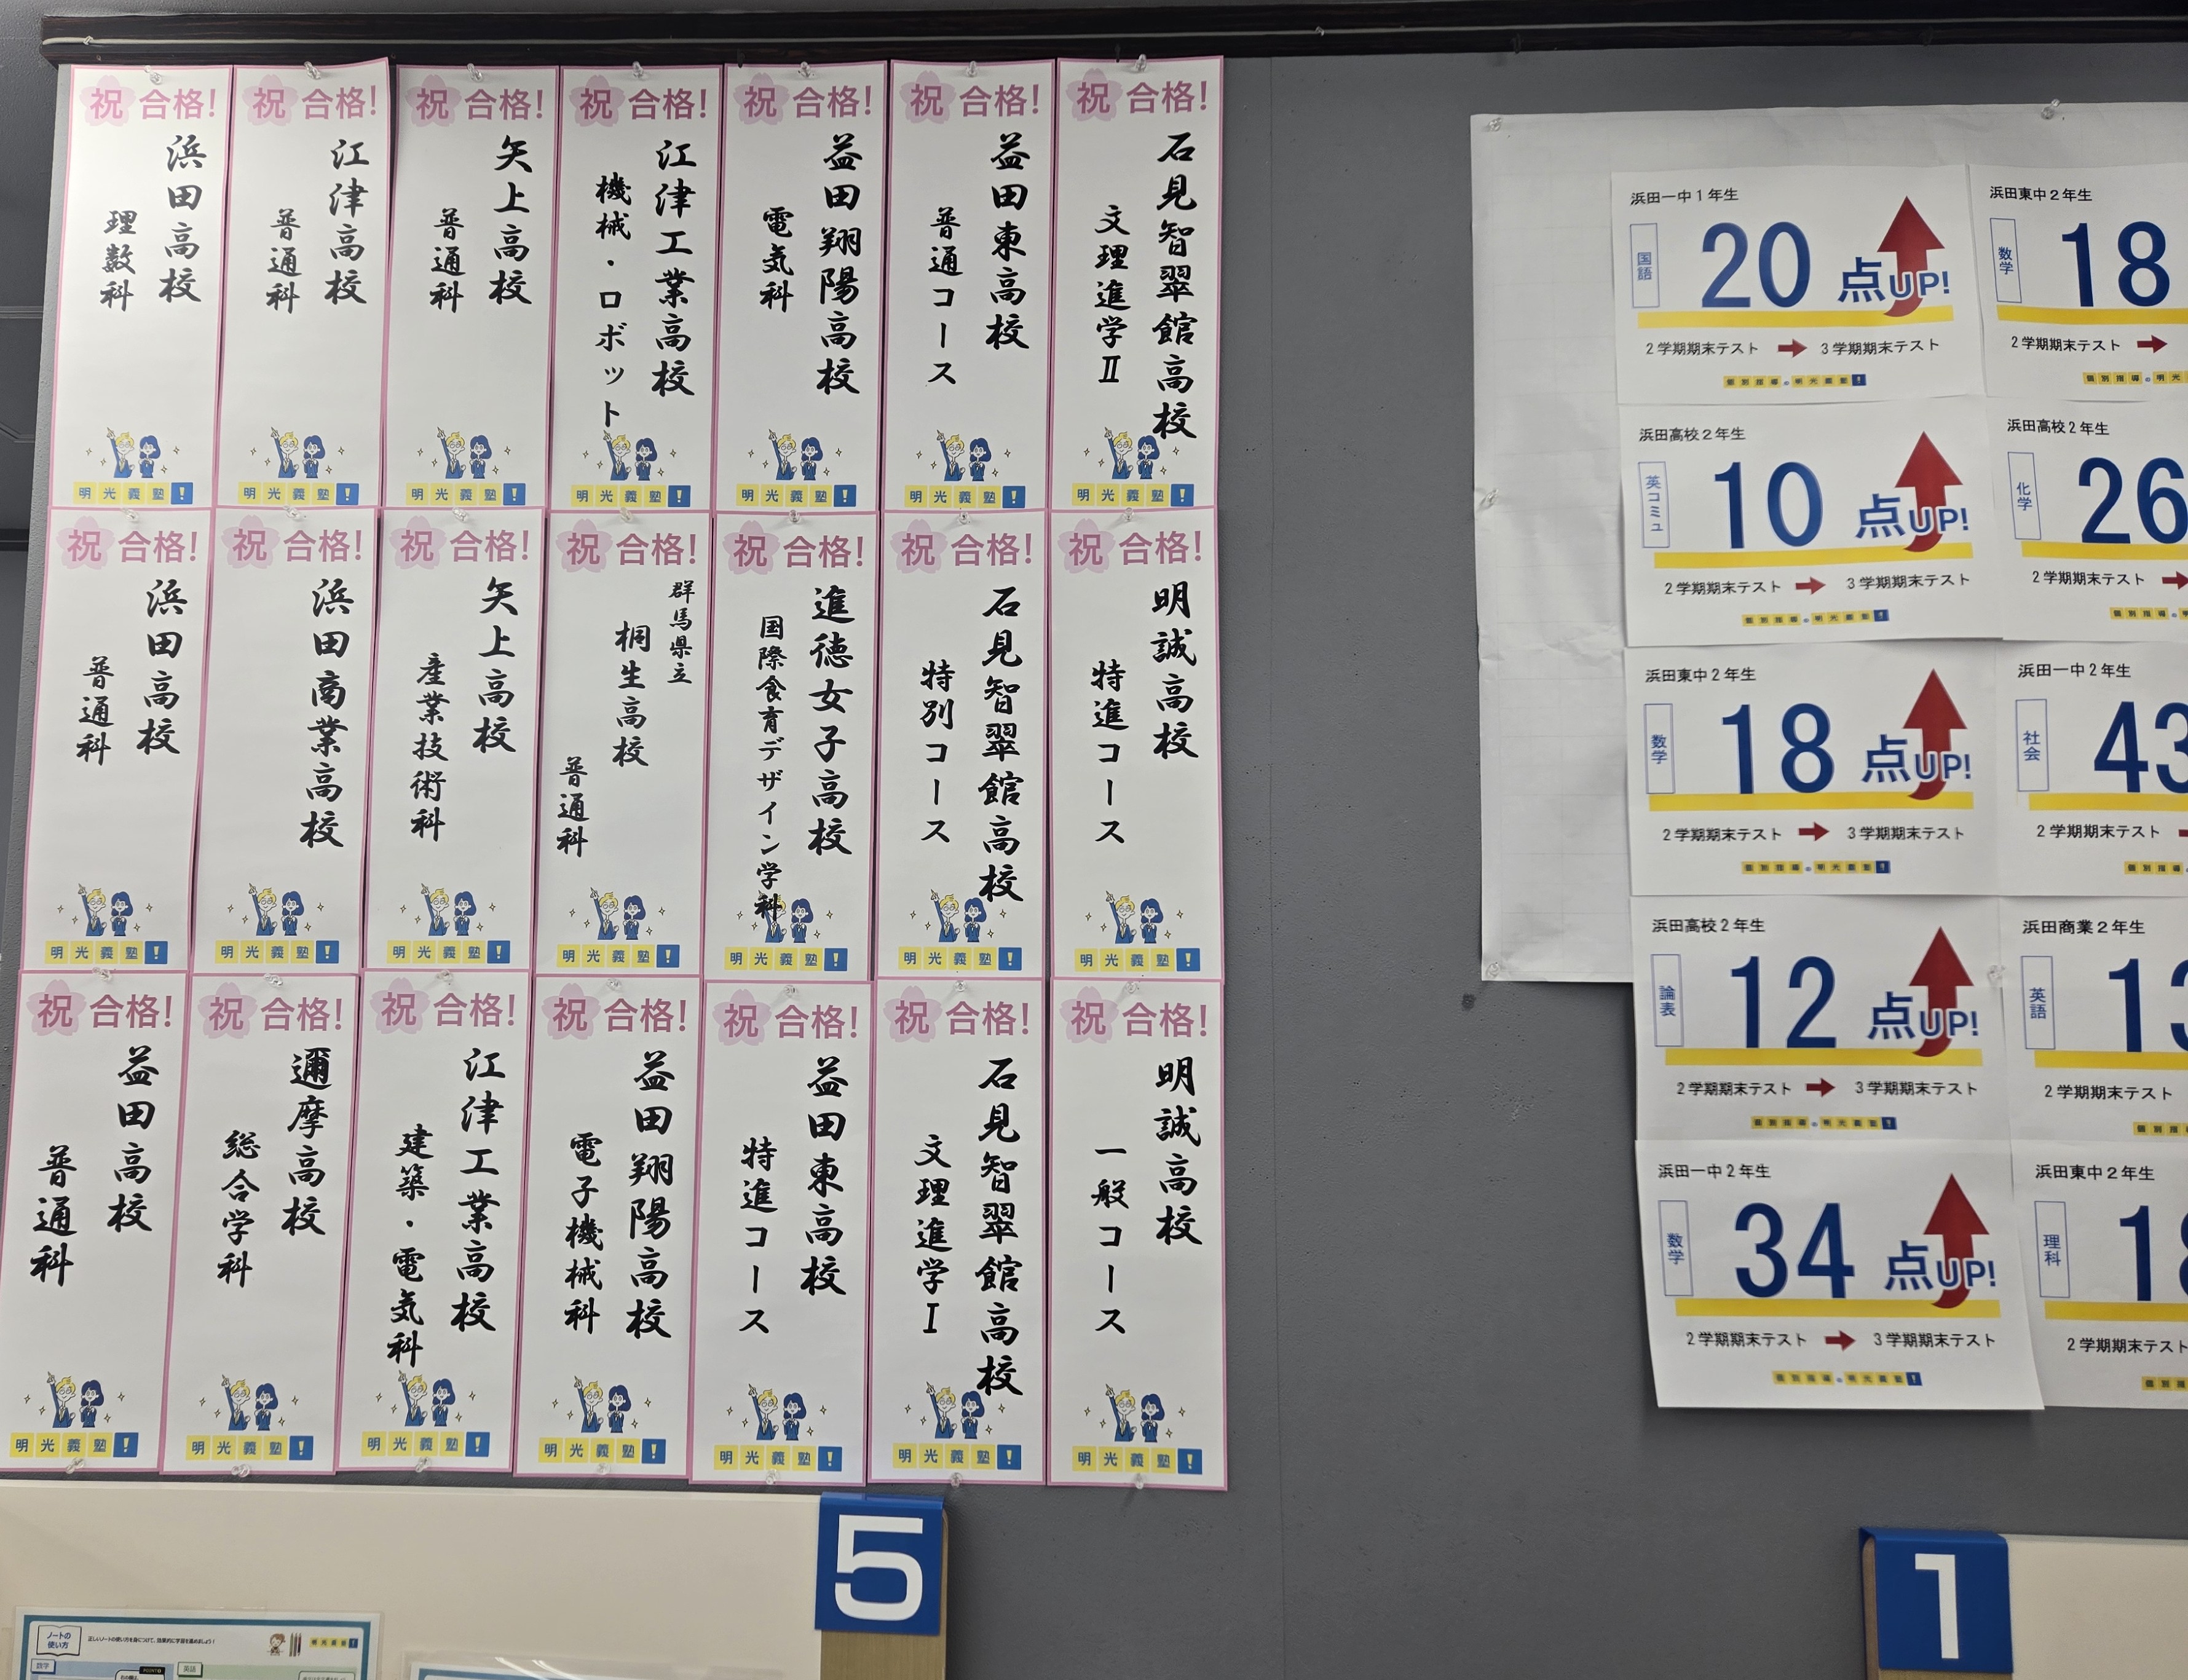 祝 合格!
浜田高校
理数科
明光義塾!
祝 合格!
江津高校
普通科
明光義塾!
祝 合格!
矢上高校
普通科
明光義塾!
祝 合格!
江津工業高校
機械・ロボット
明光義塾!
祝 合格!
益田翔陽高校
電気科
明光義塾!
祝 合格!
益田東高校
普通コース
明光義塾!
祝 合格!
石見智翠館高校
文理進学Ⅱ
明光義塾!
祝 合格!
浜田高校
普通科
明光義塾!
祝 合格!
浜田商業高校
明光義塾!
祝 合格!
矢上高校
産業技術科
明光義塾!
祝 合格!
群馬県立
桐生高校
普通科
明光義塾!
祝 合格!
進徳女子高校
国際食育デザイン学科
明光義塾!
祝 合格!
石見智翠館高校
特別コース
明光義塾!
祝 合格!
明誠高校
特進コース
明光義塾!
祝 合格!
益田高校
普通科
明光義塾!
祝 合格!
邇摩高校
総合学科
明光義塾!
祝 合格!
江津工業高校
建築・電気科
明光義塾!
祝 合格!
益田翔陽高校
電子機械科
明光義塾!
祝 合格!
益田東高校
特進コース
明光義塾!
祝 合格!
石見智翠館高校
文理進学Ⅰ
明光義塾!
祝 合格!
明誠高校
一般コース
明光義塾!
浜田一中1年生
国語
20点UP!
2学期期末テスト → 3学期期末テスト
個別指導の明光義塾!
浜田東中2年生
数学
18
2学期期末テスト →
個別指導の明光
浜田高校2年生
英コミュ
10点UP!
2学期期末テスト → 3学期期末テスト
個別指導の明光義塾!
浜田高校2年生
化学
26
2学期期末テスト →
個別指導の
浜田東中2年生
数学
18点UP!
2学期期末テスト → 3学期期末テスト
個別指導の明光義塾!
浜田一中2年生
社会
43
2学期期末テスト
個別指導
浜田高校2年生
論表
12点UP!
2学期期末テスト → 3学期期末テスト
個別指導の明光義塾!
浜田商業2年生
英語
2学期期末テスト
個別指
浜田一中2年生
数学
34点UP!
2学期期末テスト → 3学期期末テスト
個別指導の明光義塾!
浜田東中2年生
理科
18
2学期期末テスト
個別指
5
1
ノートの
使い方
正しいノートの使い方を身につけて、効果的に学習を進めましょう!
明光義塾!
数学
英語